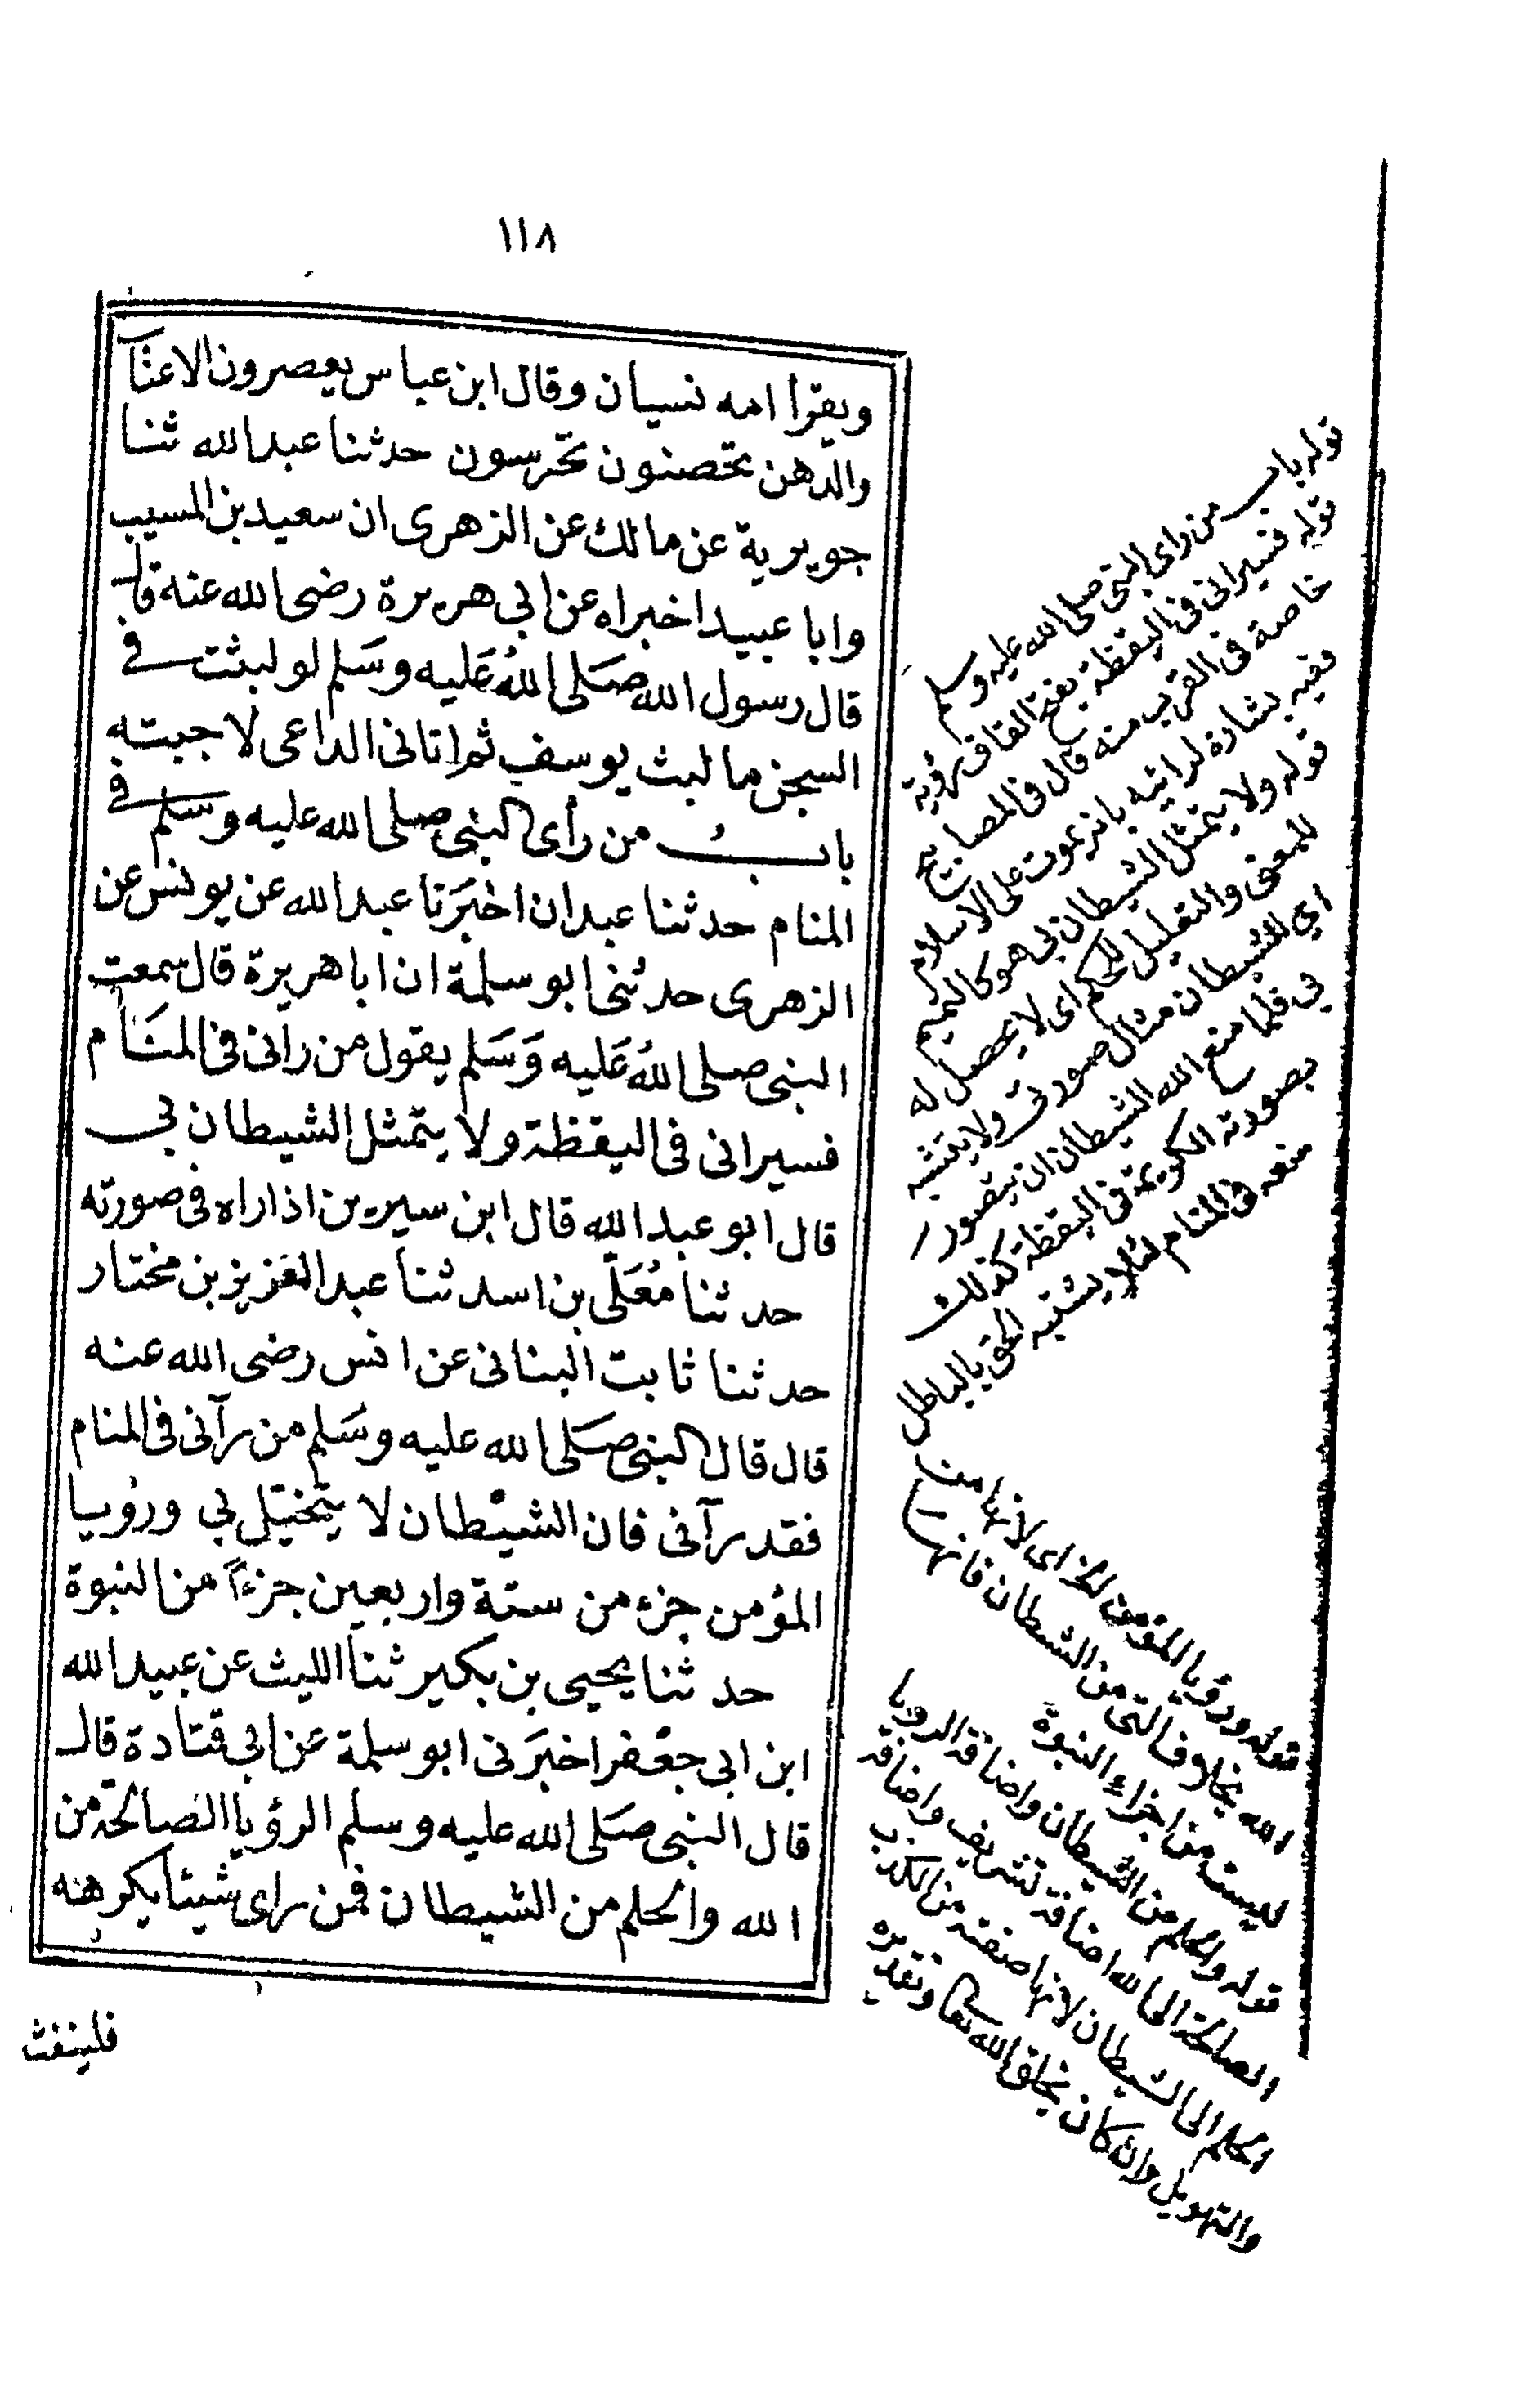 ١١٨
ويقرأ امه نسيان وقال ابن عباس يعصرون الاعنا
والدهن تحصنون تحرسون حدثنا عبد الله ثنا
جويرية عن مالك عن الزهرى ان سعيد بن المسيب
وابا عبيد اخبراه عن ابي هريرة رضى الله عنه قال
قال رسول الله صلى الله عليه وسلم لو لبثت في
السجن ما لبث يوسف ثم اتانى الداعى لاجبته
باب من رأى النبى صلى الله عليه وسلم في
المنام حدثنا عبدان اخبرنا عبد الله عن يونس عن
الزهرى حدثنى ابو سلمة ان ابا هريرة قال سمعت
النبى صلى الله عليه وسلم يقول من رانى فى المنام
فسيرانى فى اليقظة ولا يتمثل الشيطان بي
قال ابو عبد الله قال ابن سيرين اذا راه فى صورته
حدثنا معلى بن اسد ثنا عبد العزيز بن مختار
حدثنا ثابت البنانى عن انس رضى الله عنه
قال قال النبى صلى الله عليه وسلم من رآنى فى المنام
فقد رآنى فان الشيطان لا يتخيّل بي ورؤيا
المؤمن جزء من ستة واربعين جزءاً من النبوة
حدثنا يحيى بن بكير ثنا الليث عن عبيد الله
ابن ابى جعفر اخبرنى ابو سلمة عن ابى قتادة قال
قال النبى صلى الله عليه وسلم الرؤيا الصالحة من
الله والحلم من الشيطان فمن راى شيئا يكرهه
فلينفث
قوله باب من راى النبى صلى الله عليه وسلم
قوله فسيرانى فى اليقظة بفتح القاف رؤية
خاصة فى القرب منه قال فى المصابيح
ففيه بشارة لرائيه بانه يموت على الاسلام
قوله ولا يتمثل الشيطان بي هو كالتميم
للمعنى والتعليل للحكم اى لا يحصل له
اي للشيطان مثال صورتى ولا يتشبه
بي فلما منع الله الشيطان ان يتصور
بصورته الكريمة فى اليقظة كذلك
منعه فى المنام لئلا يشتبه الحق بالباطل
قوله ورؤيا المؤمن الخ اى لانها من
الله بخلاف التى من الشيطان فانها
ليست من اجزاء النبوة
قوله والحلم من الشيطان واضافة الرؤيا
الصالحة الى الله اضافة تشريف واضافة
الحلم الى الشيطان لانها صفته من الكذب
والتهويل وان كان بخلق الله تعالى وتقديره